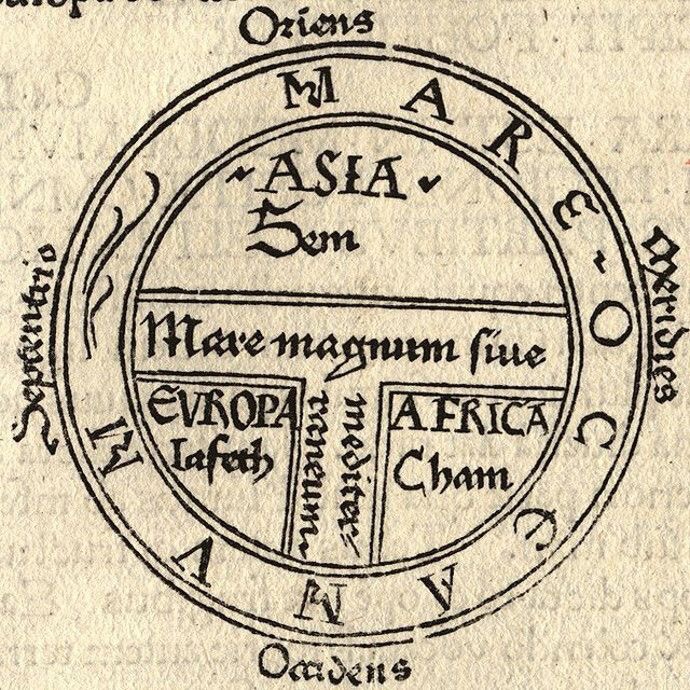 Oriens
MARE OCCEANVM
ASIA
Sem
Septentrio
Meridies
Mare magnum siue
mediter=
raneum
EVROPA
Iafeth
AFRICA
Cham
Occidens